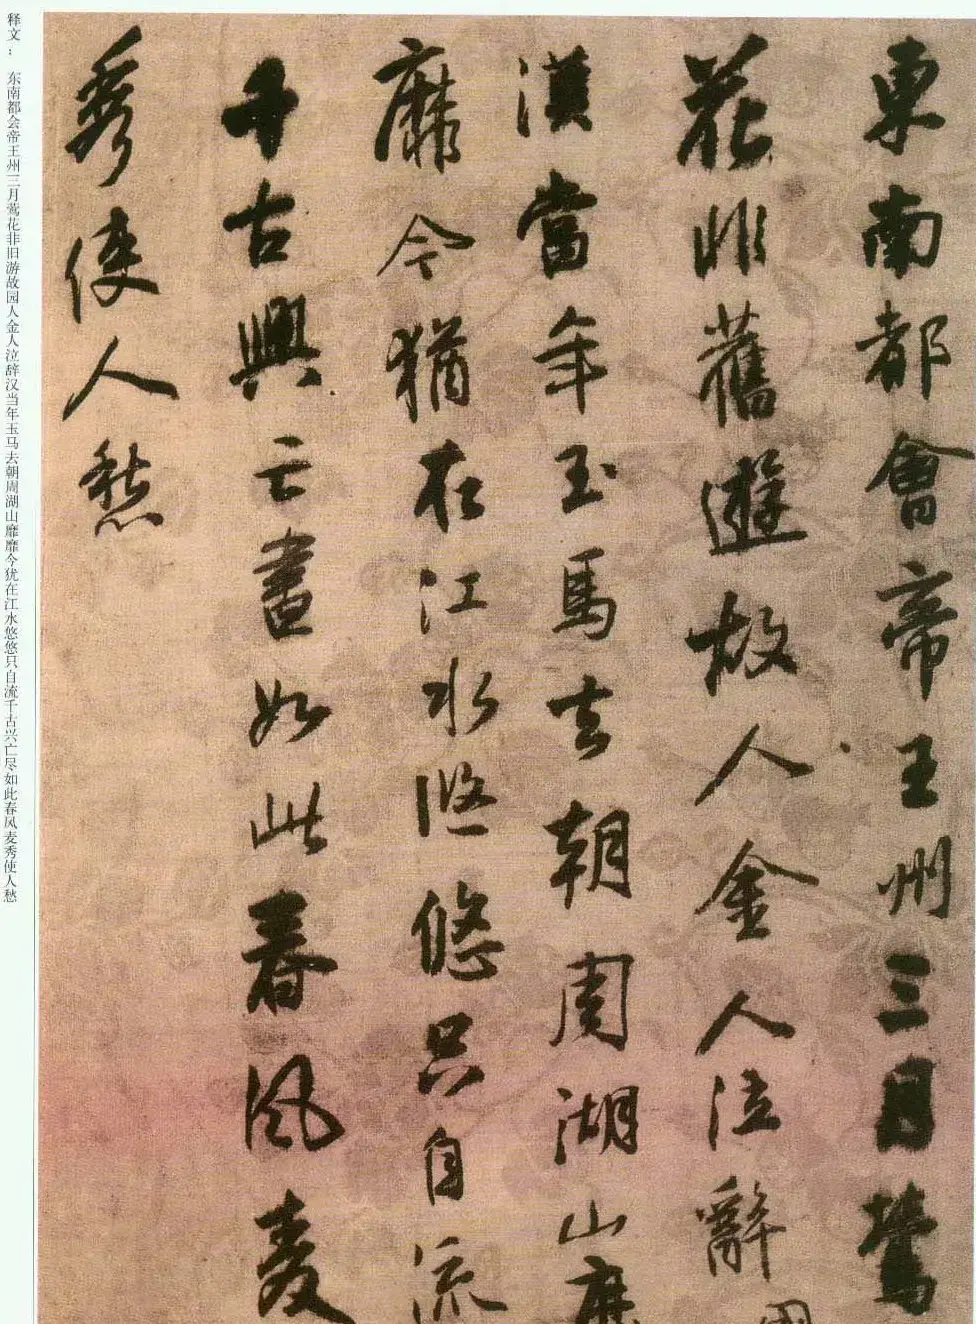 東南都會帝王州三月鶯
花非舊遊故人金人泣辭
漢當年玉馬去朝周湖山靡
靡今猶在江水悠悠只自流
千古興亡盡如此春風麥
秀使人愁
释文： 东南都会帝王州三月莺花非旧游故园人金人泣辞汉当年玉马去朝周湖山靡靡今犹在江水悠悠只自流千古兴亡尽如此春风麦秀使人愁